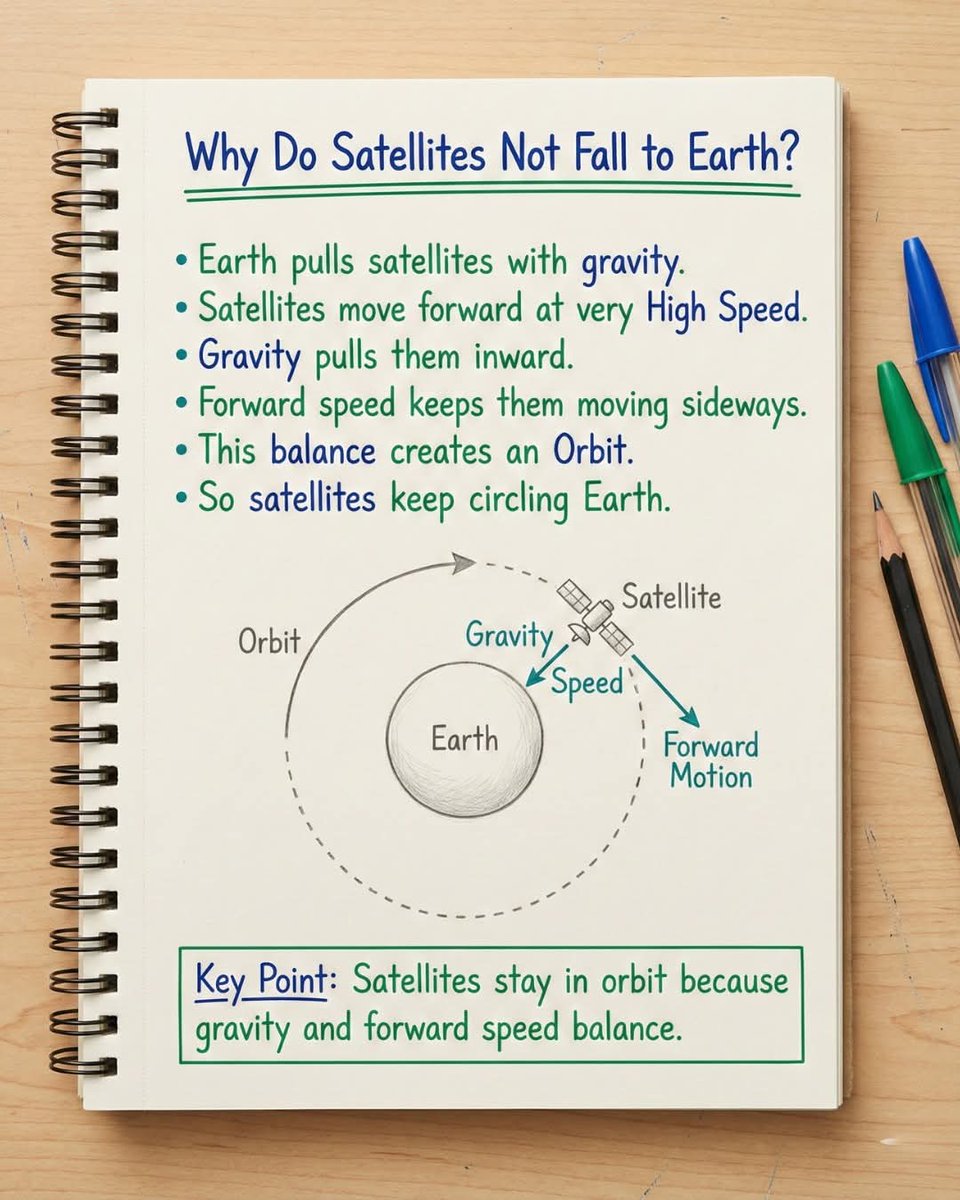 Why Do Satellites Not Fall to Earth?
• Earth pulls satellites with gravity.
• Satellites move forward at very High Speed.
• Gravity pulls them inward.
• Forward speed keeps them moving sideways.
• This balance creates an Orbit.
• So satellites keep circling Earth.
Satellite
Orbit
Gravity
Speed
Earth
Forward
Motion
Key Point: Satellites stay in orbit because
gravity and forward speed balance.